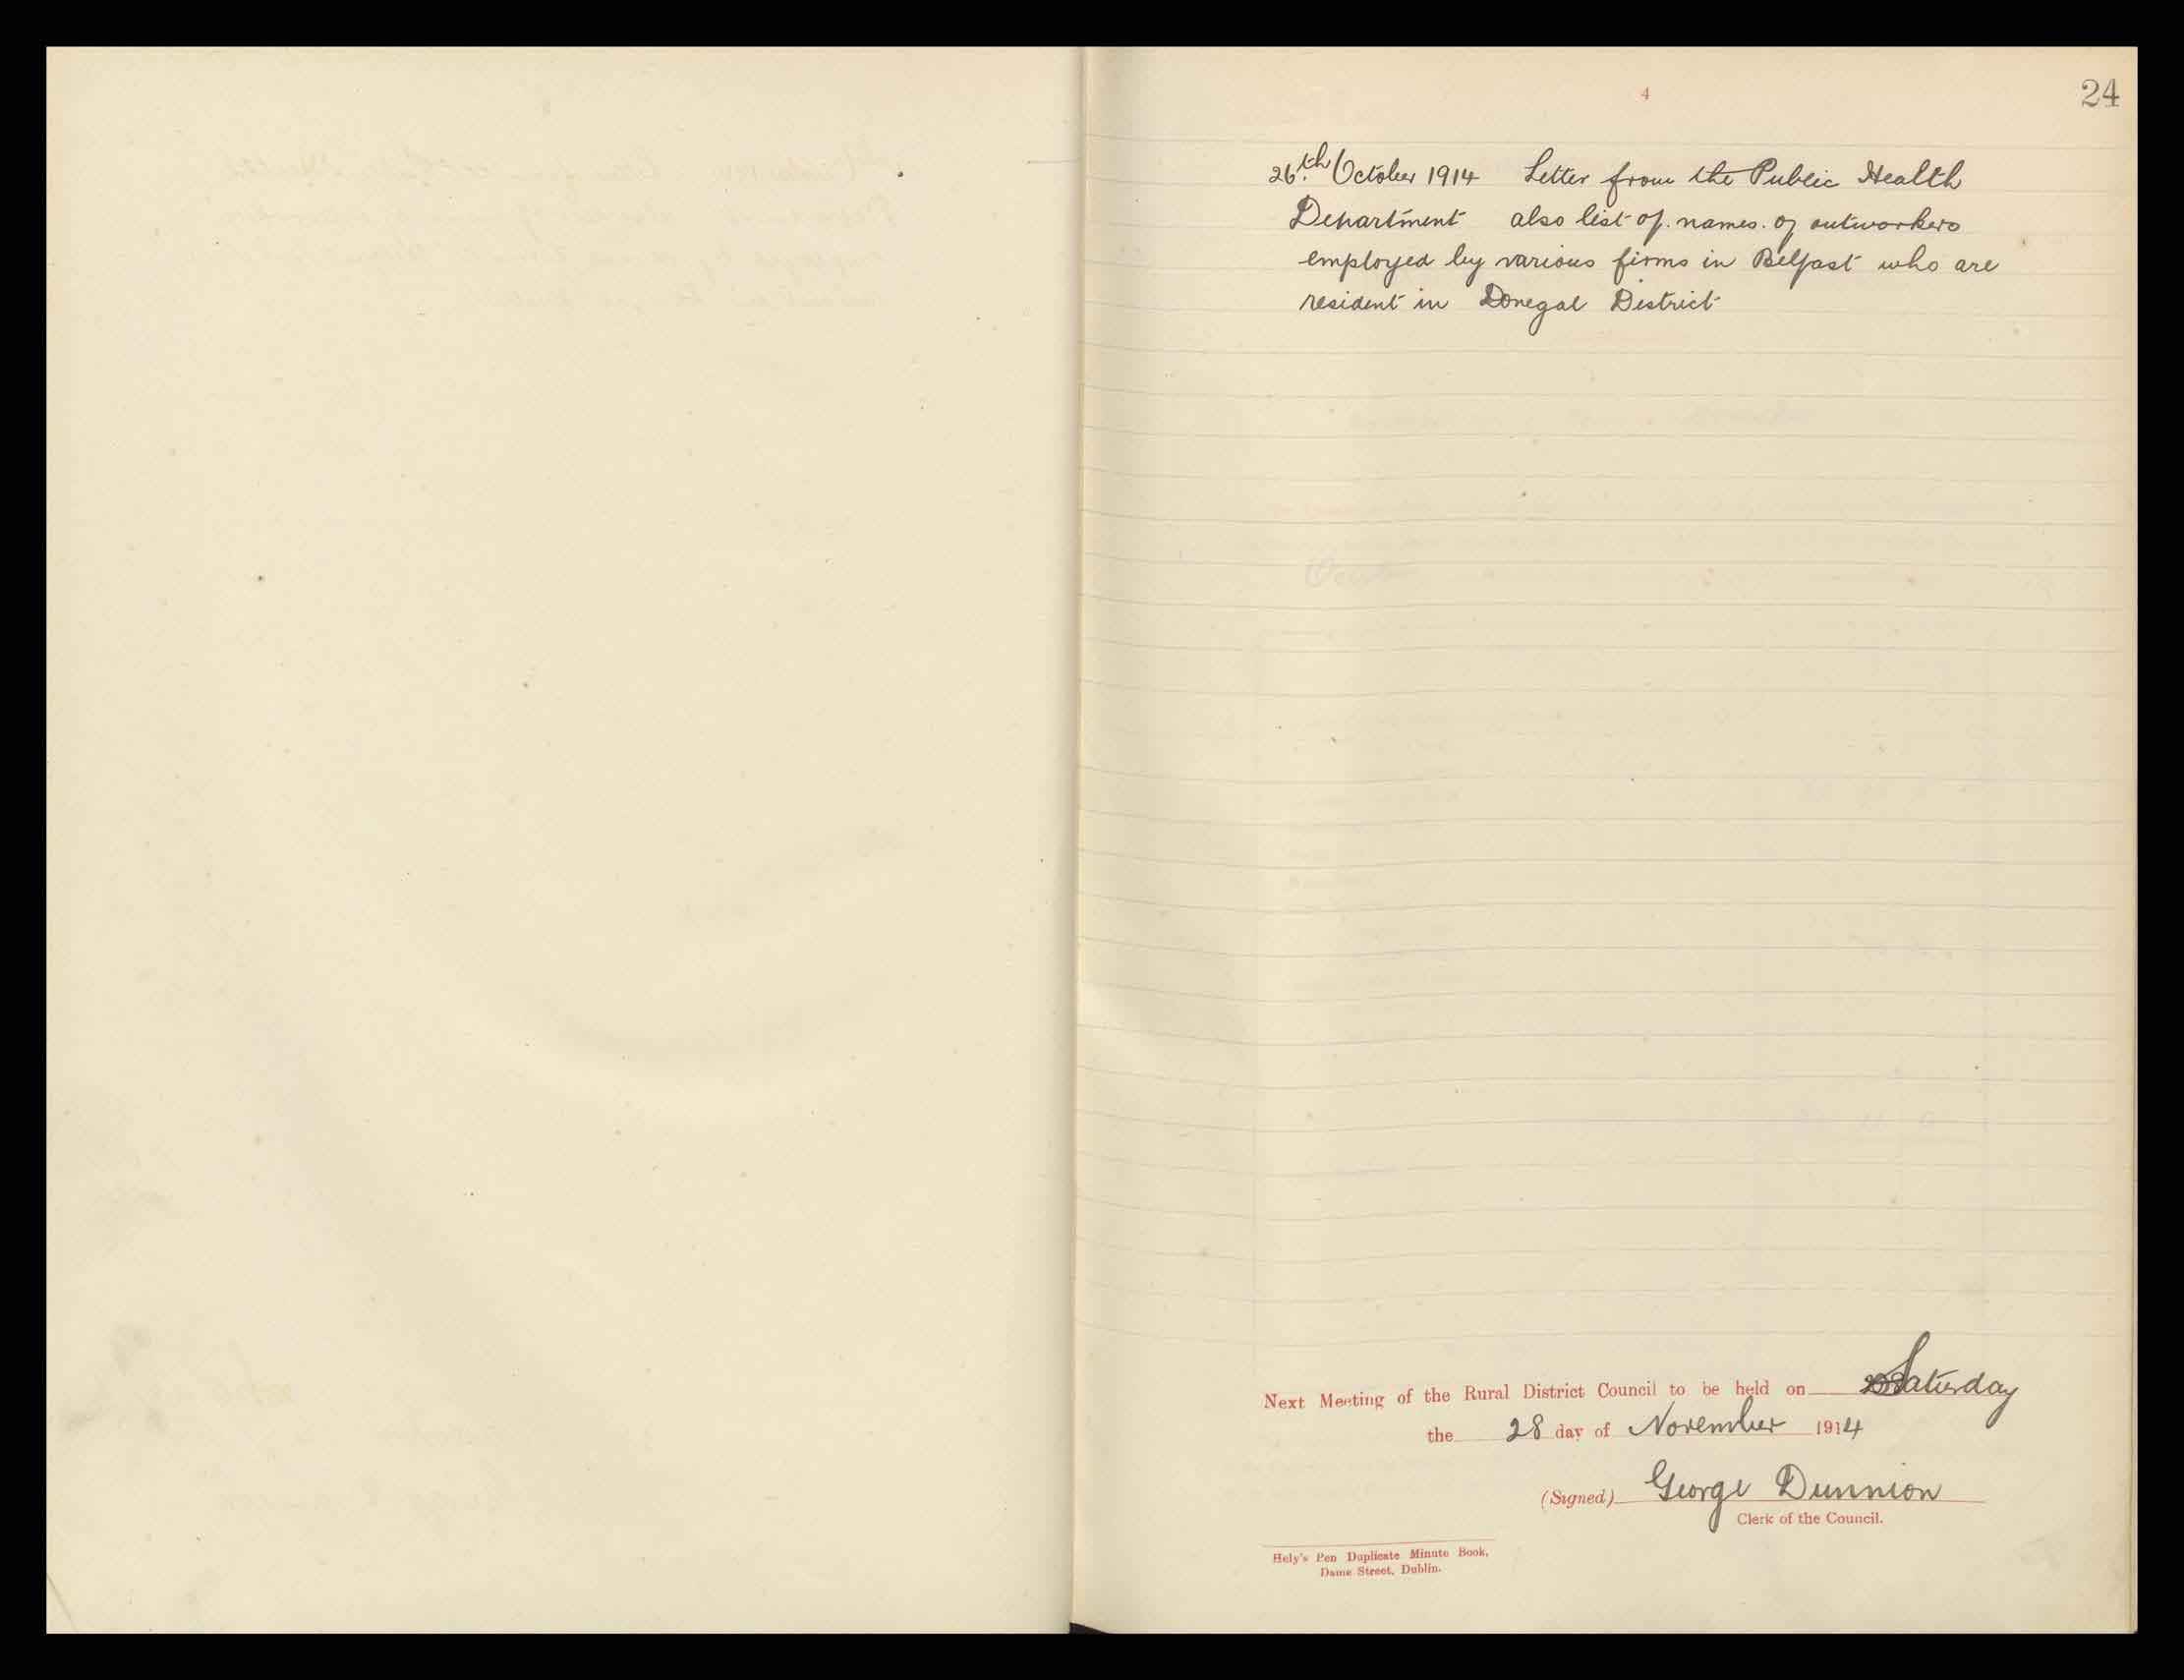 4
24
26th October 1914 Letter from the Public Health
Department also list of names of outworkers
employed by various firms in Belfast who are
resident in Donegal District
Next Meeting of the Rural District Council to be held on Saturday
the 28 day of November 1914
(Signed) George Dunnion
Clerk of the Council.
Hely's Pen Duplicate Minute Book,
Dame Street, Dublin.